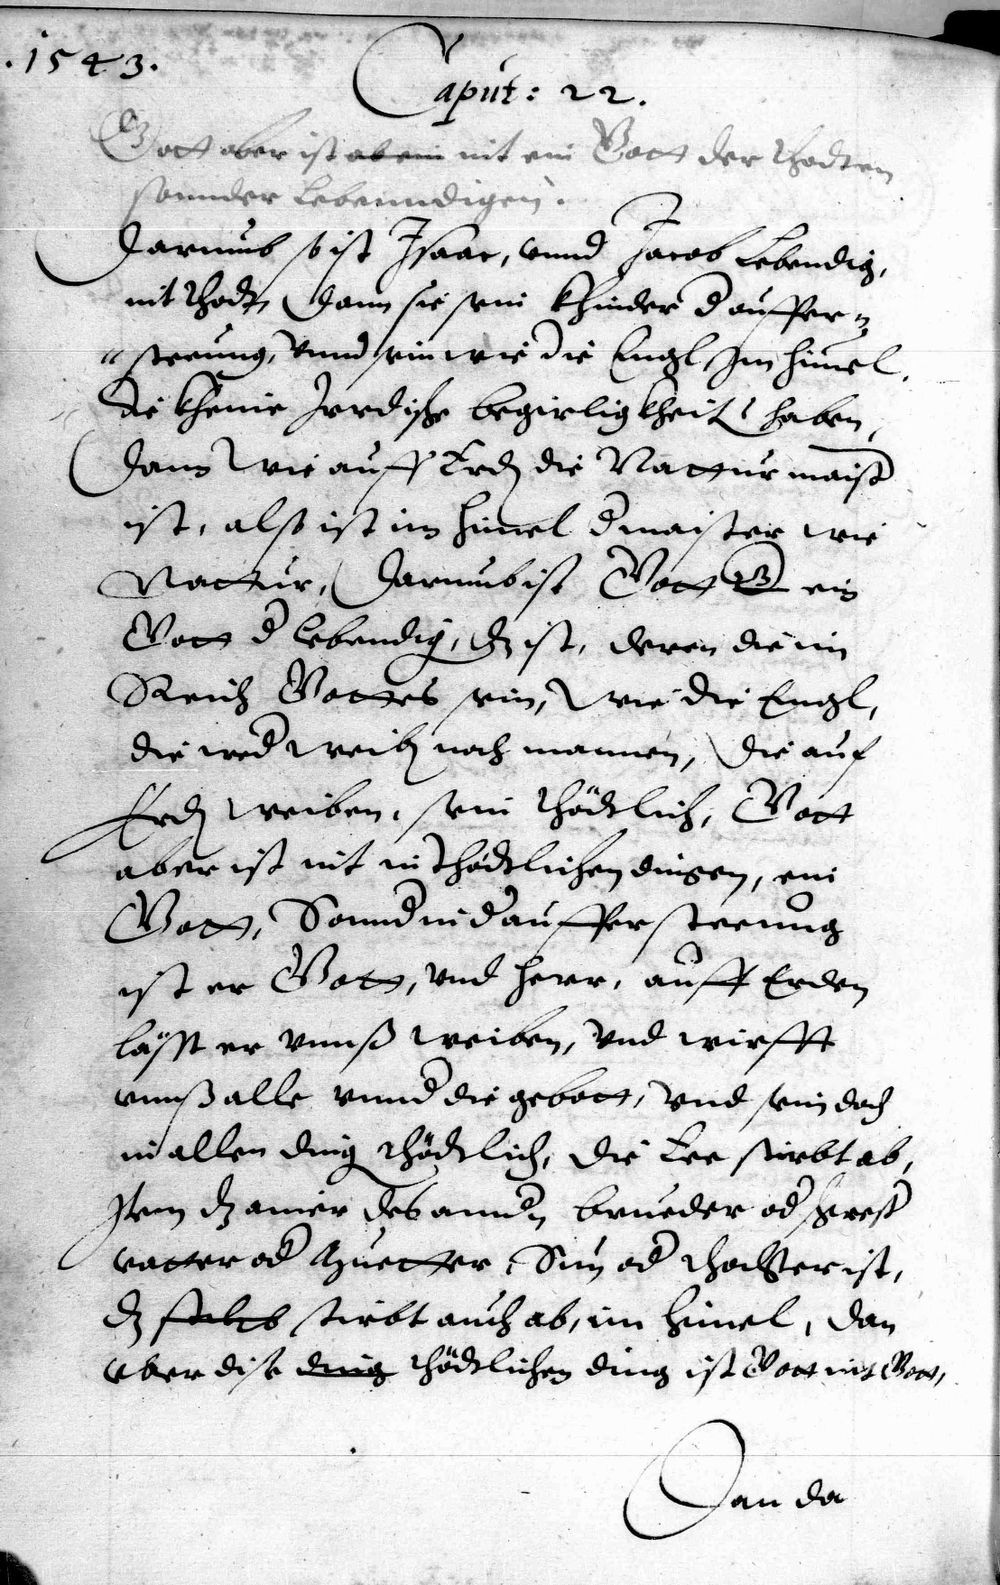 .1543.
Caput: 22.
Gott aber ist aber ein nit ein Gott der thodten
sonnder Lebenndigen.
Darumb so ist Isaac, vnnd Jacob Lebendig,
nit thodt, Dann sie sein Khinder d auffer=
"steeung, Vnnd sein wie die Engl Im himel,
die kheine Irrdische begirligkheit haben,
Dann wie auff Erdn die Nattur maist
ist, also ist im himel d maister wie
Nattur, Darumb ist Gott ein
Gott d lebendig, dz ist, deren die im
Reich Gottes sein, wie die Engl,
die wed weibn noch mannen, Die auf
Erdn weiben, sein thödtlich, Gott
aber ist nit in thödtlichen dingen, ein
Gott, Sonnd in d auffersteeung
ist er Gott, vnd herr, auff Erden
lässt er vnnß weiben, vnd wirfft
vnnß alle vnnd die gebott, vnd sein doch
in allen ding thödtlich, die Eee stirbt ab,
Item dz ainer des anndn brueder od schwest
vatter od Muetter, Sun od thochter ist,
dz selbs stirbt auch ab, im himel, dan
vber dise ding thödtlichen ding ist Gott nit Gott,
Dan da